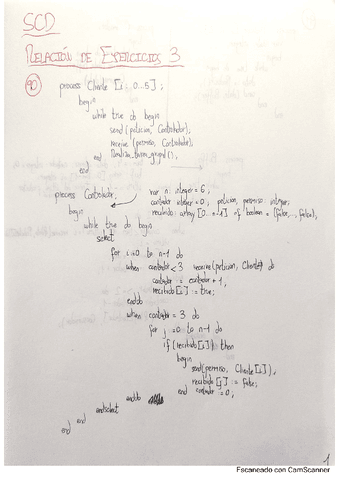 SCD
RELACIÓN DE EJERCICIOS 3
90) process Cliente [i : 0..5] ;
begin
while true do begin
send (peticion, Controlador);
receive (permiso, Controlador);
();
end
end
process Controlador;
var n: integer = 6,
contador integer = 0; peticion, permiso: integer;
recibido: array [0..n-1] of boolean = (false,..., false);
begin
while true do begin
select
for i:=0 to n-1 do
when contador < 3 receive (peticion, Cliente[i]) do
contador := contador + 1;
recibido [i] := true;
enddo
when contador = 3 do
for j :=0 to n-1 do
if (recibido [j]) then
begin
send (permiso, Cliente [j]);
recibido [j] := false;
end contador = 0;
enddo
endselect
end
end
1
Escaneado con CamScanner